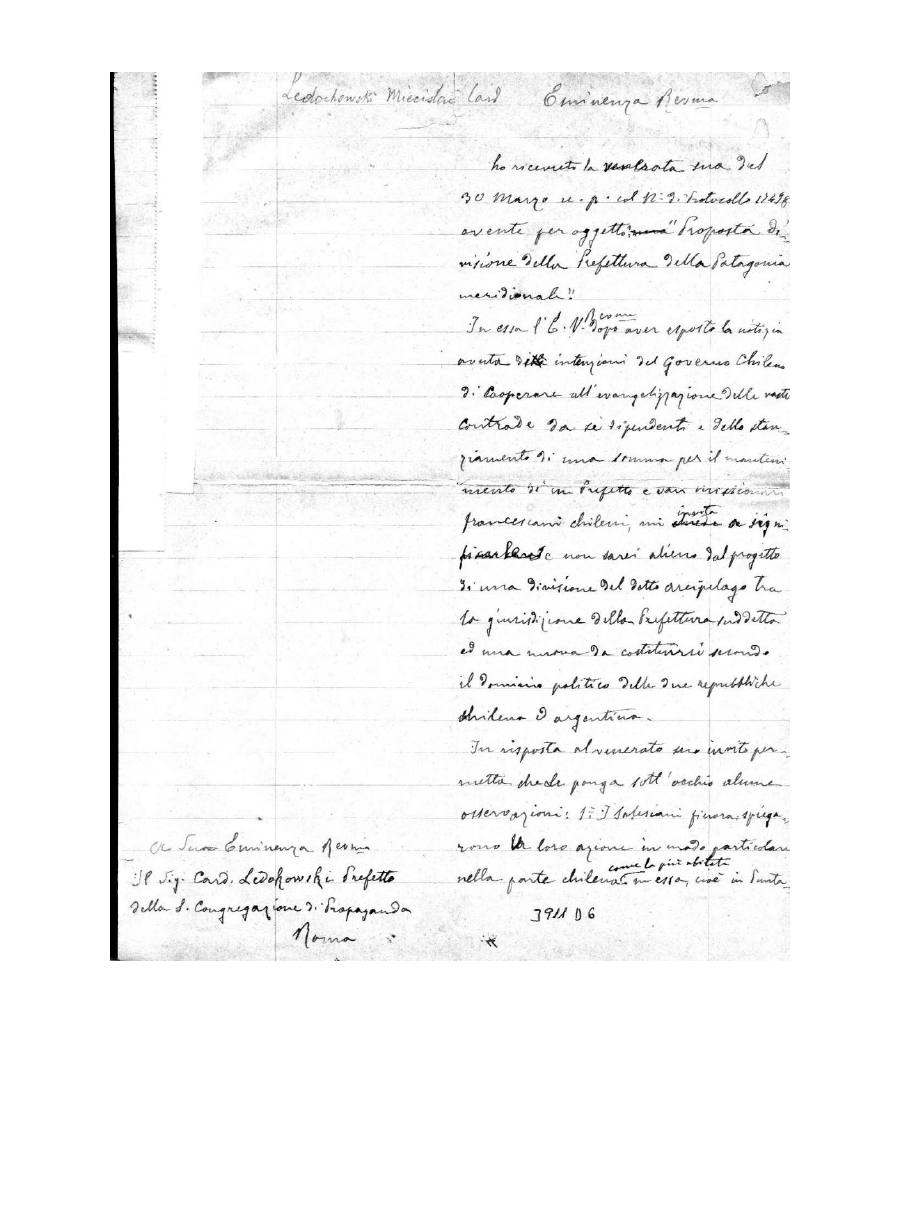 Ledochowski Miecislao Card
Eminenza Revma
ho ricevuto la venerata sua del
30 Marzo u. p. col N. di Protocollo
avente per oggetto: "Proposta di-
visione della Prefettura della Patagonia
meridionale".
In essa l'E. V. Revma dopo aver esposto la notizia
avuta intenzioni del Governo Chileno
di cooperare all'evangelizzazione delle vaste
contrade da sè dipendenti e dello stan-
ziamento di una somma per il manteni-
mento di un Prefetto e vari missionari
francescani chileni, mi invita a signi
ficarle se non sarei alieno dal progetto
di una divisione del detto arcipelago tra
la giurisdizione della Prefettura suddetta
ed una nuova da costituirsi secondo
il dominio politico delle due repubbliche
chilena ed argentina.
In risposta al venerato suo invito per-
metta che le ponga sott'occhio alcune
osservazioni: 1° I Salesiani finora spiega-
rono la loro azione in modo particolare
nella parte chilena come la più abitata in essa, cioè in Punta-
A Sua Eminenza Revma
Il Sig. Card. Ledokowski Prefetto
della S. Congregazione di Propaganda
Roma
3911 D6